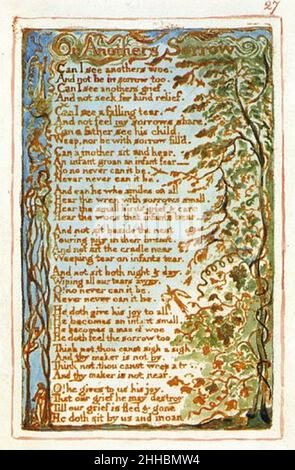 27
On Anothers Sorrow
Can I see anothers woe,
And not be in sorrow too.
Can I see anothers grief,
And not seek for kind relief.
Can I see a falling tear,
And not feel my sorrows share,
Can a father see his child,
Weep, nor be with sorrow fill'd.
Can a mother sit and hear,
An infant groan an infant fear
No no never can it be,
Never never can it be.
And can he who smiles on all
Hear the wren with sorrows small,
Hear the small birds grief & care
Hear the woes that infants bear
And not sit beside the nest
Pouring pity in their breast,
And not sit the cradle near
Weeping tear on infants tear.
And not sit both night & day,
Wiping all our tears away,
O! no never can it be,
Never never can it be.
He doth give his joy to all,
He becomes an infant small,
He becomes a man of woe
He doth feel the sorrow too.
Think not thou canst sigh a sigh,
And thy maker is not by,
Think not thou canst weep a
And thy maker is not near.
O! he gives to us his joy,
That our grief he may destroy
Till our grief is fled & gone
He doth sit by us and moan
alamy
Image ID: 2HHBMW4
www.alamy.com